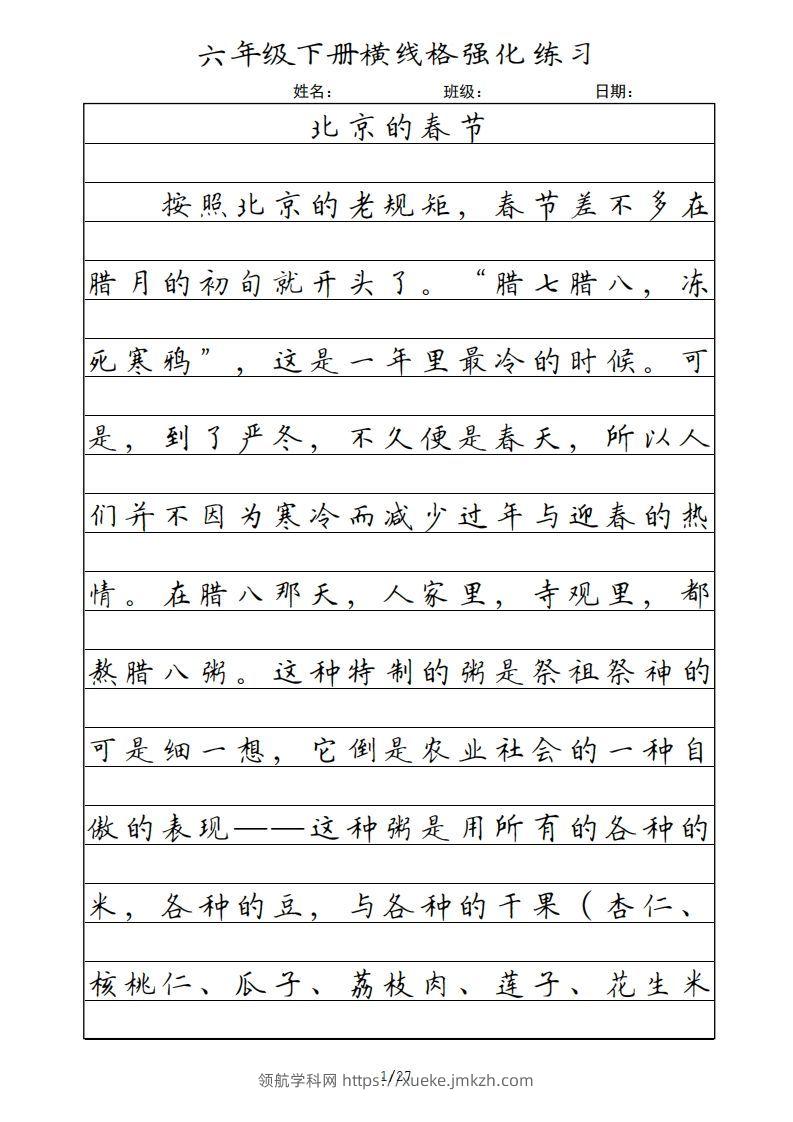 六年级下册横线格强化练习
姓名： 班级： 日期：
北京的春节
按照北京的老规矩，春节差不多在
腊月的初旬就开头了。“腊七腊八，冻
死寒鸦”，这是一年里最冷的时候。可
是，到了严冬，不久便是春天，所以人
们并不因为寒冷而减少过年与迎春的热
情。在腊八那天，人家里，寺观里，都
熬腊八粥。这种特制的粥是祭祖祭神的
可是细一想，它倒是农业社会的一种自
傲的表现——这种粥是用所有的各种的
米，各种的豆，与各种的干果（杏仁、
核桃仁、瓜子、荔枝肉、莲子、花生米
1/27
领航学科网 https://xueke.jmkzh.com